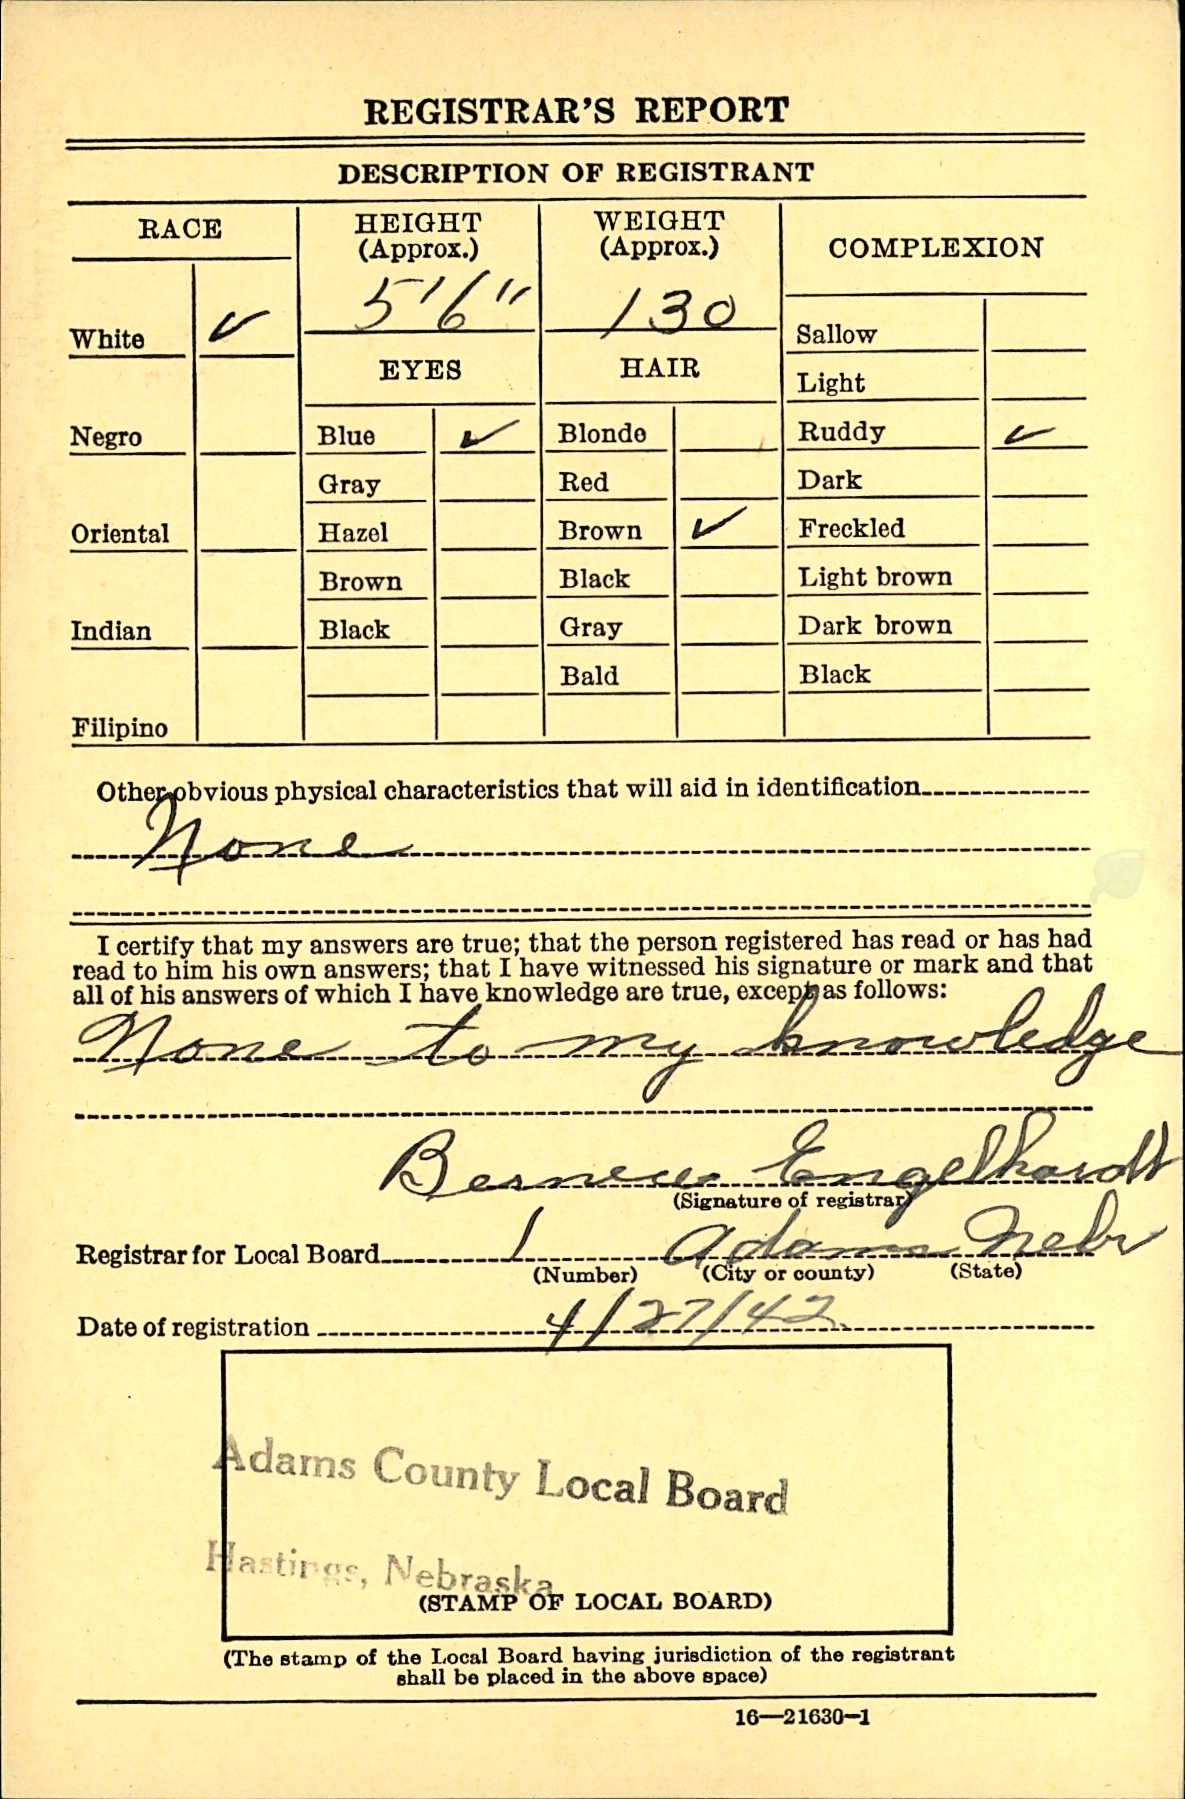 REGISTRAR'S REPORT
DESCRIPTION OF REGISTRANT
RACE
HEIGHT
(Approx.)
WEIGHT
(Approx.)
COMPLEXION
5'6"
130
White ✓
Sallow
EYES
HAIR
Light
Negro
Blue ✓
Blonde
Ruddy ✓
Gray
Red
Dark
Oriental
Hazel
Brown ✓
Freckled
Brown
Black
Light brown
Indian
Black
Gray
Dark brown
Bald
Black
Filipino
Other obvious physical characteristics that will aid in identification
None
I certify that my answers are true; that the person registered has read or has had
read to him his own answers; that I have witnessed his signature or mark and that
all of his answers of which I have knowledge are true, except as follows:
None to my knowledge
Engelhardt
(Signature of registrar)
Registrar for Local Board 1 Adams Nebr
(Number) (City or county) (State)
Date of registration 4/27/42
Adams County Local Board
Hastings, Nebraska
(STAMP OF LOCAL BOARD)
(The stamp of the Local Board having jurisdiction of the registrant
shall be placed in the above space)
16—21630-1